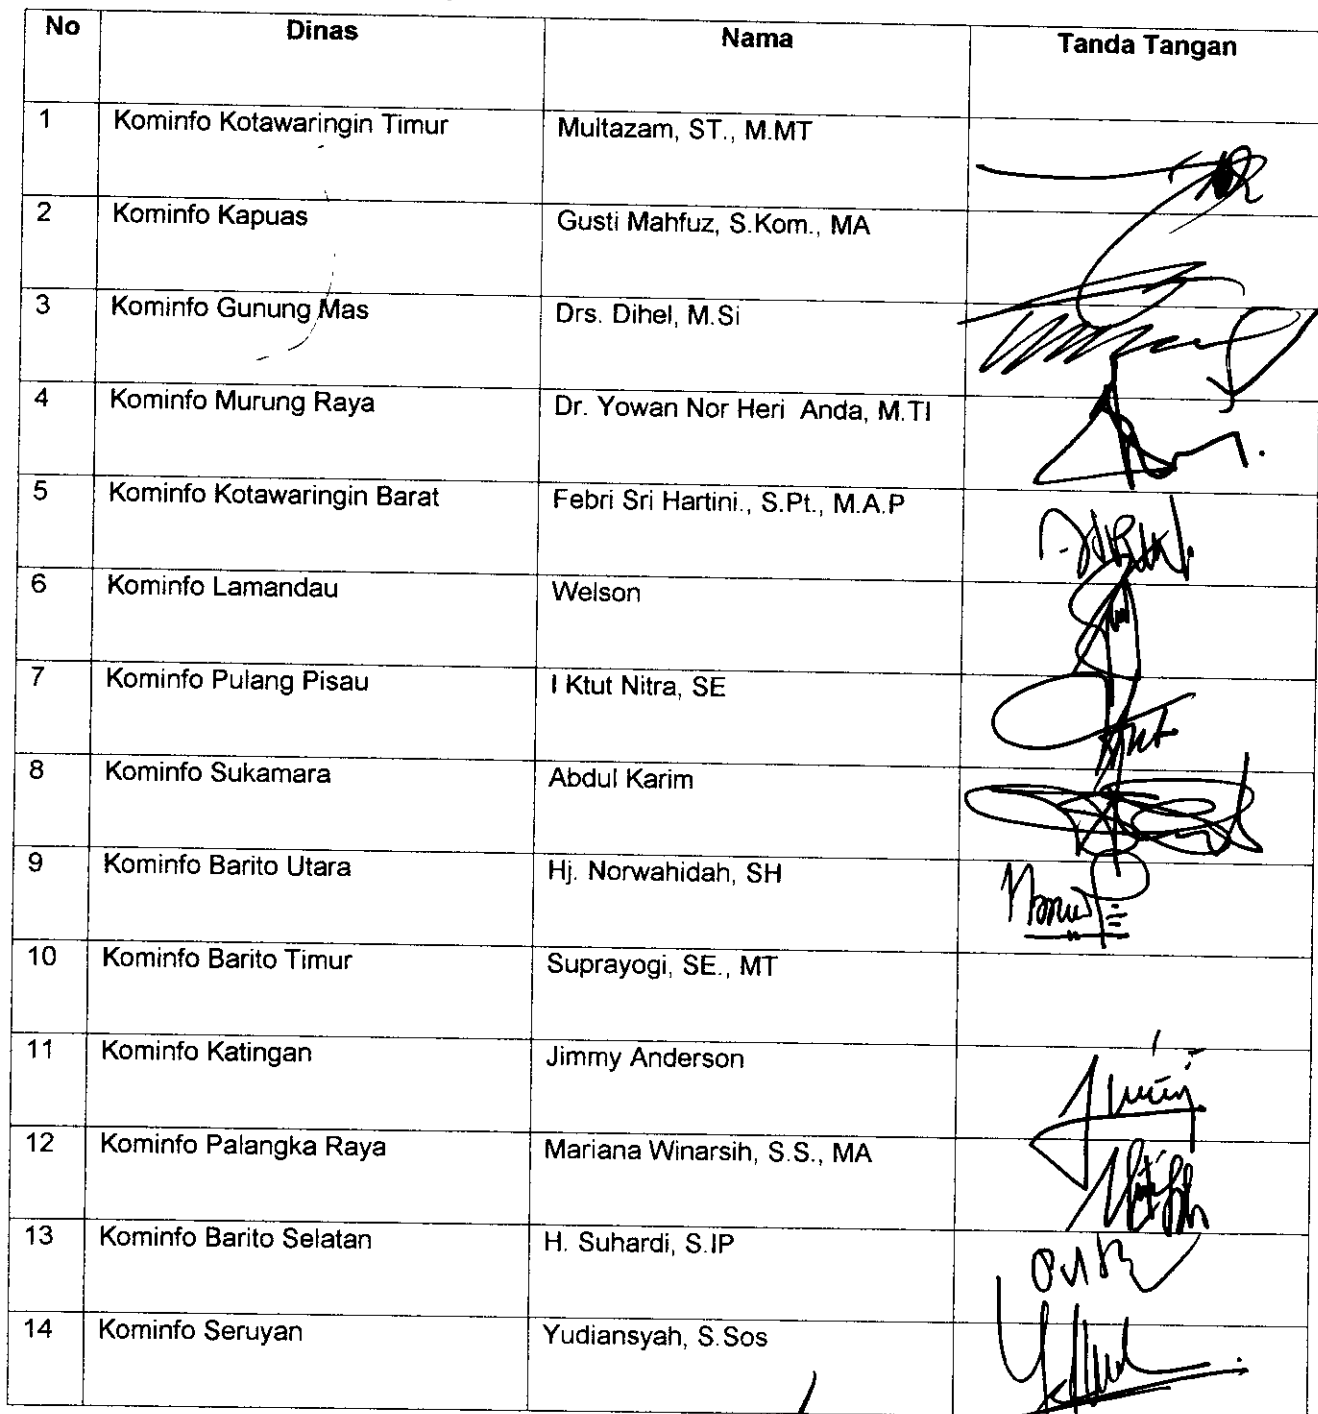 No Dinas Nama Tanda Tangan
1 Kominfo Kotawaringin Timur Multazam, ST., M.MT
2 Kominfo Kapuas Gusti Mahfuz, S.Kom., MA
3 Kominfo Gunung Mas Drs. Dihel, M.Si
4 Kominfo Murung Raya Dr. Yowan Nor Heri Anda, M.TI
5 Kominfo Kotawaringin Barat Febri Sri Hartini., S.Pt., M.A.P
6 Kominfo Lamandau Welson
7 Kominfo Pulang Pisau I Ktut Nitra, SE
8 Kominfo Sukamara Abdul Karim
9 Kominfo Barito Utara Hj. Norwahidah, SH
10 Kominfo Barito Timur Suprayogi, SE., MT
11 Kominfo Katingan Jimmy Anderson
12 Kominfo Palangka Raya Mariana Winarsih, S.S., MA
13 Kominfo Barito Selatan H. Suhardi, S.IP
14 Kominfo Seruyan Yudiansyah, S.Sos